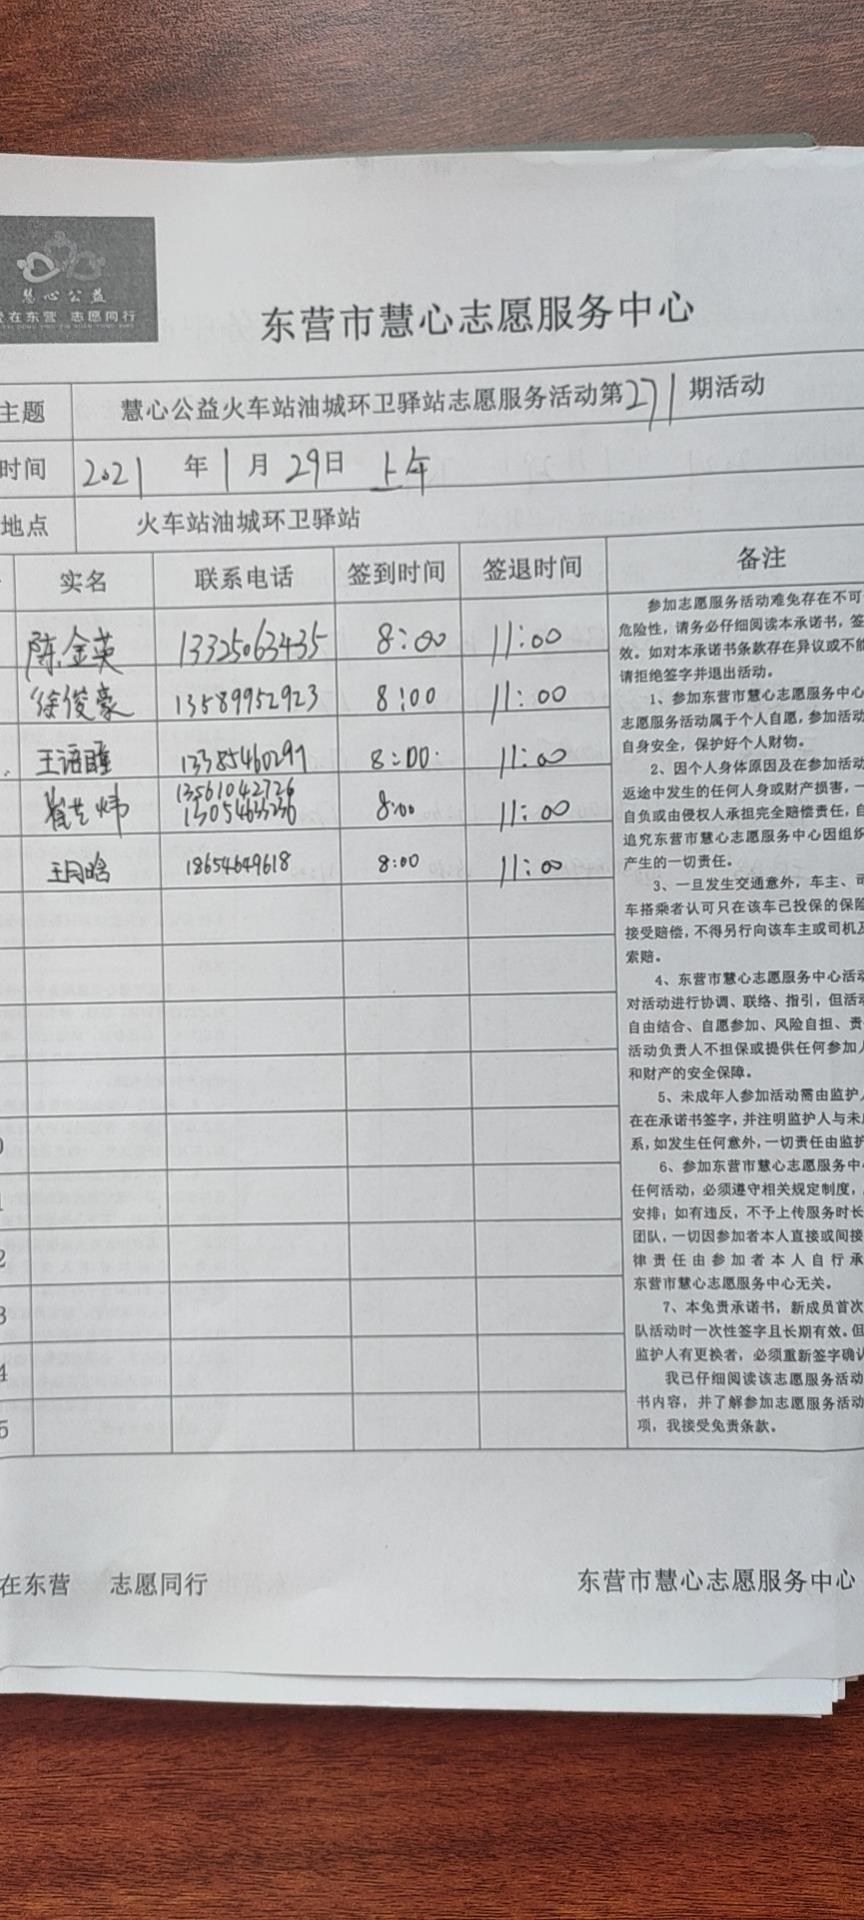 慧心公益
爱在东营 志愿同行
东营市慧心志愿服务中心
主题 慧心公益火车站油城环卫驿站志愿服务活动第271期活动
时间 2021年1月29日 上午
地点 火车站油城环卫驿站
实名 联系电话 签到时间 签退时间 备注
陈金英 13325063435 8:00 11:00
徐俊豪 13589952923 8:00 11:00
王语瞳 13385460297 8:00 11:00
13561042726
崔艺炜 13054633236 8:00 11:00
王玥晗 18654649618 8:00 11:00
参加志愿服务活动难免存在不可
危险性，请务必仔细阅读本承诺书，签
效。如对本承诺书条款存在异议或不能
请拒绝签字并退出活动。
1、参加东营市慧心志愿服务中心
志愿服务活动属于个人自愿，参加活动
自身安全，保护好个人财物。
2、因个人身体原因及在参加活动
返途中发生的任何人身或财产损害，一
自负或由侵权人承担完全赔偿责任，自
追究东营市慧心志愿服务中心因组织
产生的一切责任。
3、一旦发生交通意外，车主、司
车搭乘者认可只在该车已投保的保险
接受赔偿，不得另行向该车主或司机及
索赔。
4、东营市慧心志愿服务中心活动
对活动进行协调、联络、指引，但活动
自由结合、自愿参加、风险自担、责
活动负责人不担保或提供任何参加人
和财产的安全保障。
5、未成年人参加活动需由监护人
在在承诺书签字，并注明监护人与未成
系，如发生任何意外，一切责任由监护
6、参加东营市慧心志愿服务中心
任何活动，必须遵守相关规定制度，
安排；如有违反，不予上传服务时长
团队，一切因参加者本人直接或间接
律责任由参加者本人自行承
东营市慧心志愿服务中心无关。
7、本免责承诺书，新成员首次
队活动时一次性签字且长期有效。但
监护人有更换者，必须重新签字确认
我已仔细阅读该志愿服务活动
书内容，并了解参加志愿服务活动
项，我接受免责条款。
在东营 志愿同行 东营市慧心志愿服务中心